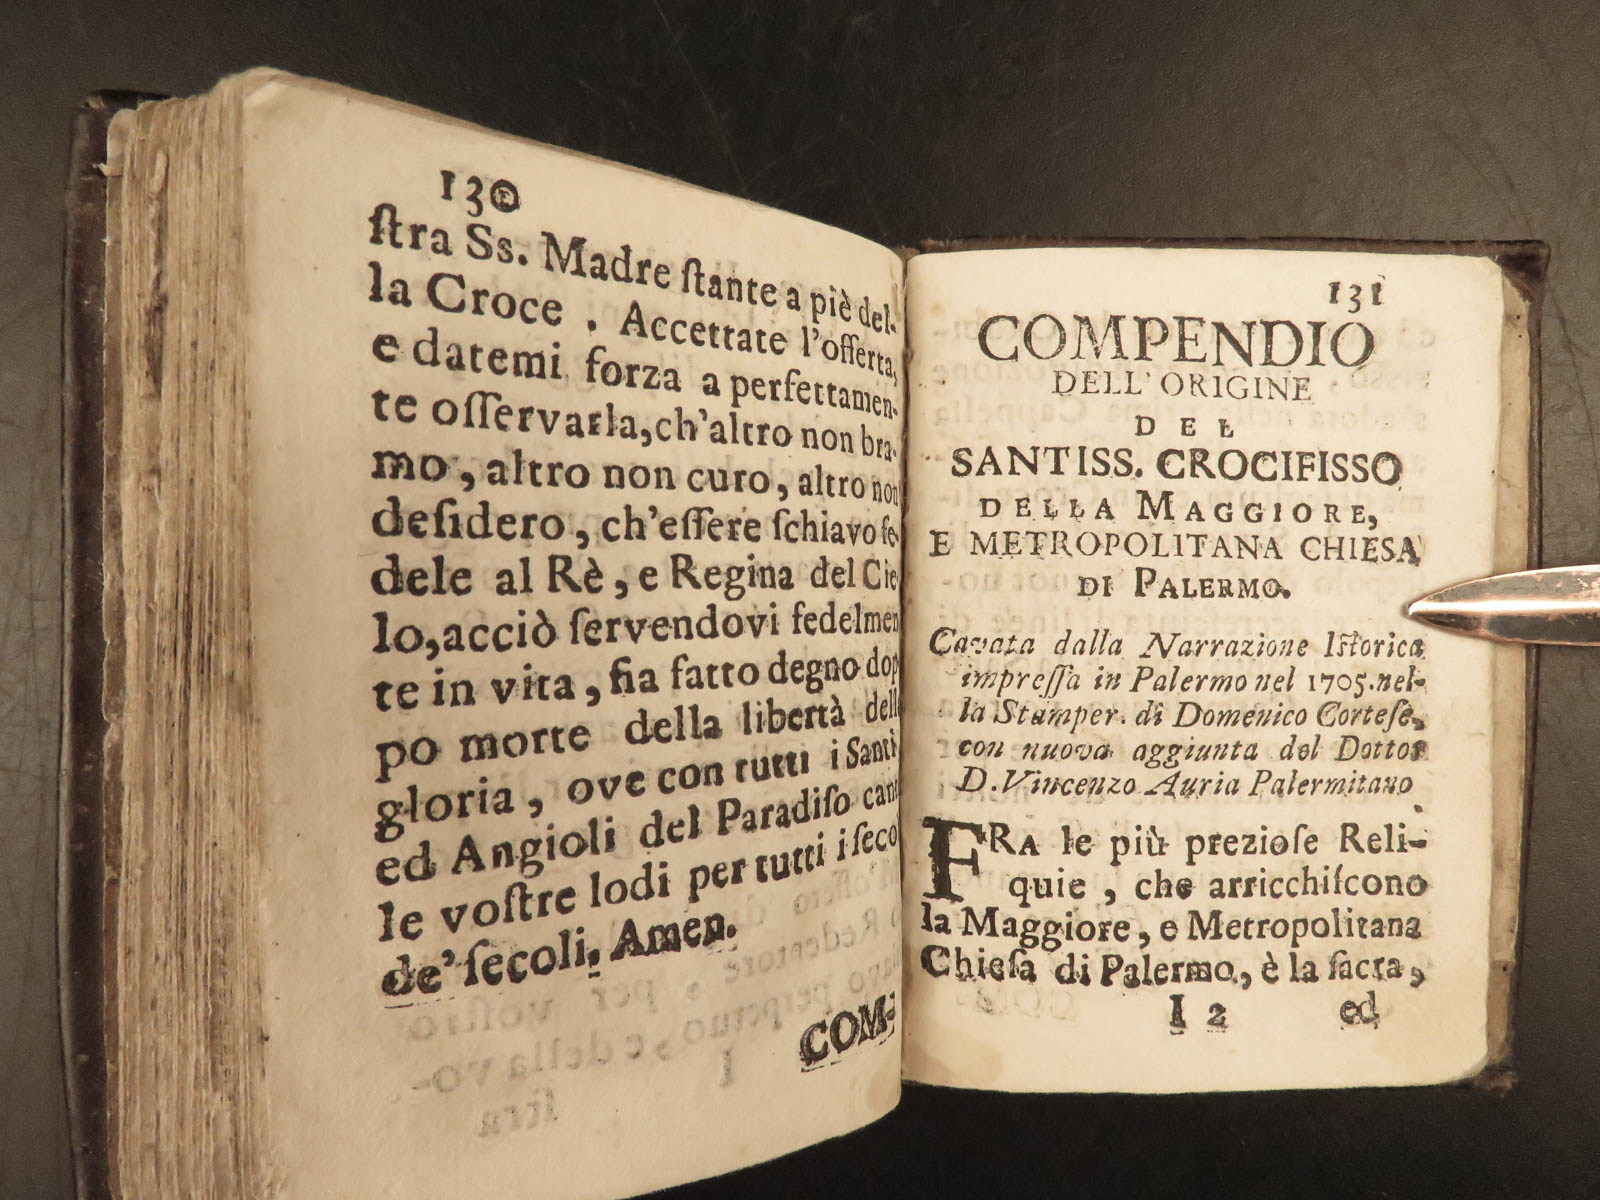 130
ſtra Ss. Madre ſtante a piè del-
la Croce . Accettate l'offerta,
e datemi forza a perfettamen-
te oſſervarla, ch'altro non bra-
mo , altro non curo , altro non
deſidero , ch'eſſere ſchiavo fe-
dele al Rè , e Regina del Cie
lo, acciò ſervendovi fedelmen
te in vita , ſia fatto degno dop
po morte della libertà dell
gloria , ove con tutti i Santi
ed Angioli del Paradiſo cant
le voſtre lodi per tutti i ſeco
de' ſecoli. Amen.
COM-
131
COMPENDIO
DELL' ORIGINE
DEL
SANTISS. CROCIFISSO
DELLA MAGGIORE,
E METROPOLITANA CHIESA
DI PALERMO.
Cavata dalla Narrazione Iſtorica
impreſſa in Palermo nel 1705. nel-
la Stamper. di Domenico Corteſe,
con nuova aggiunta del Dottor
D. Vincenzo Auria Palermitano
FRA le più prezioſe Reli-
quie , che arricchiſcono
la Maggiore, e Metropolitana
Chieſa di Palermo, è la ſacra,
I 2 ed